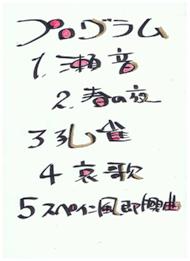 プログラム
1.瀬音
2.春の夜
3 孔雀
4 哀歌
5 スペイン風即興曲